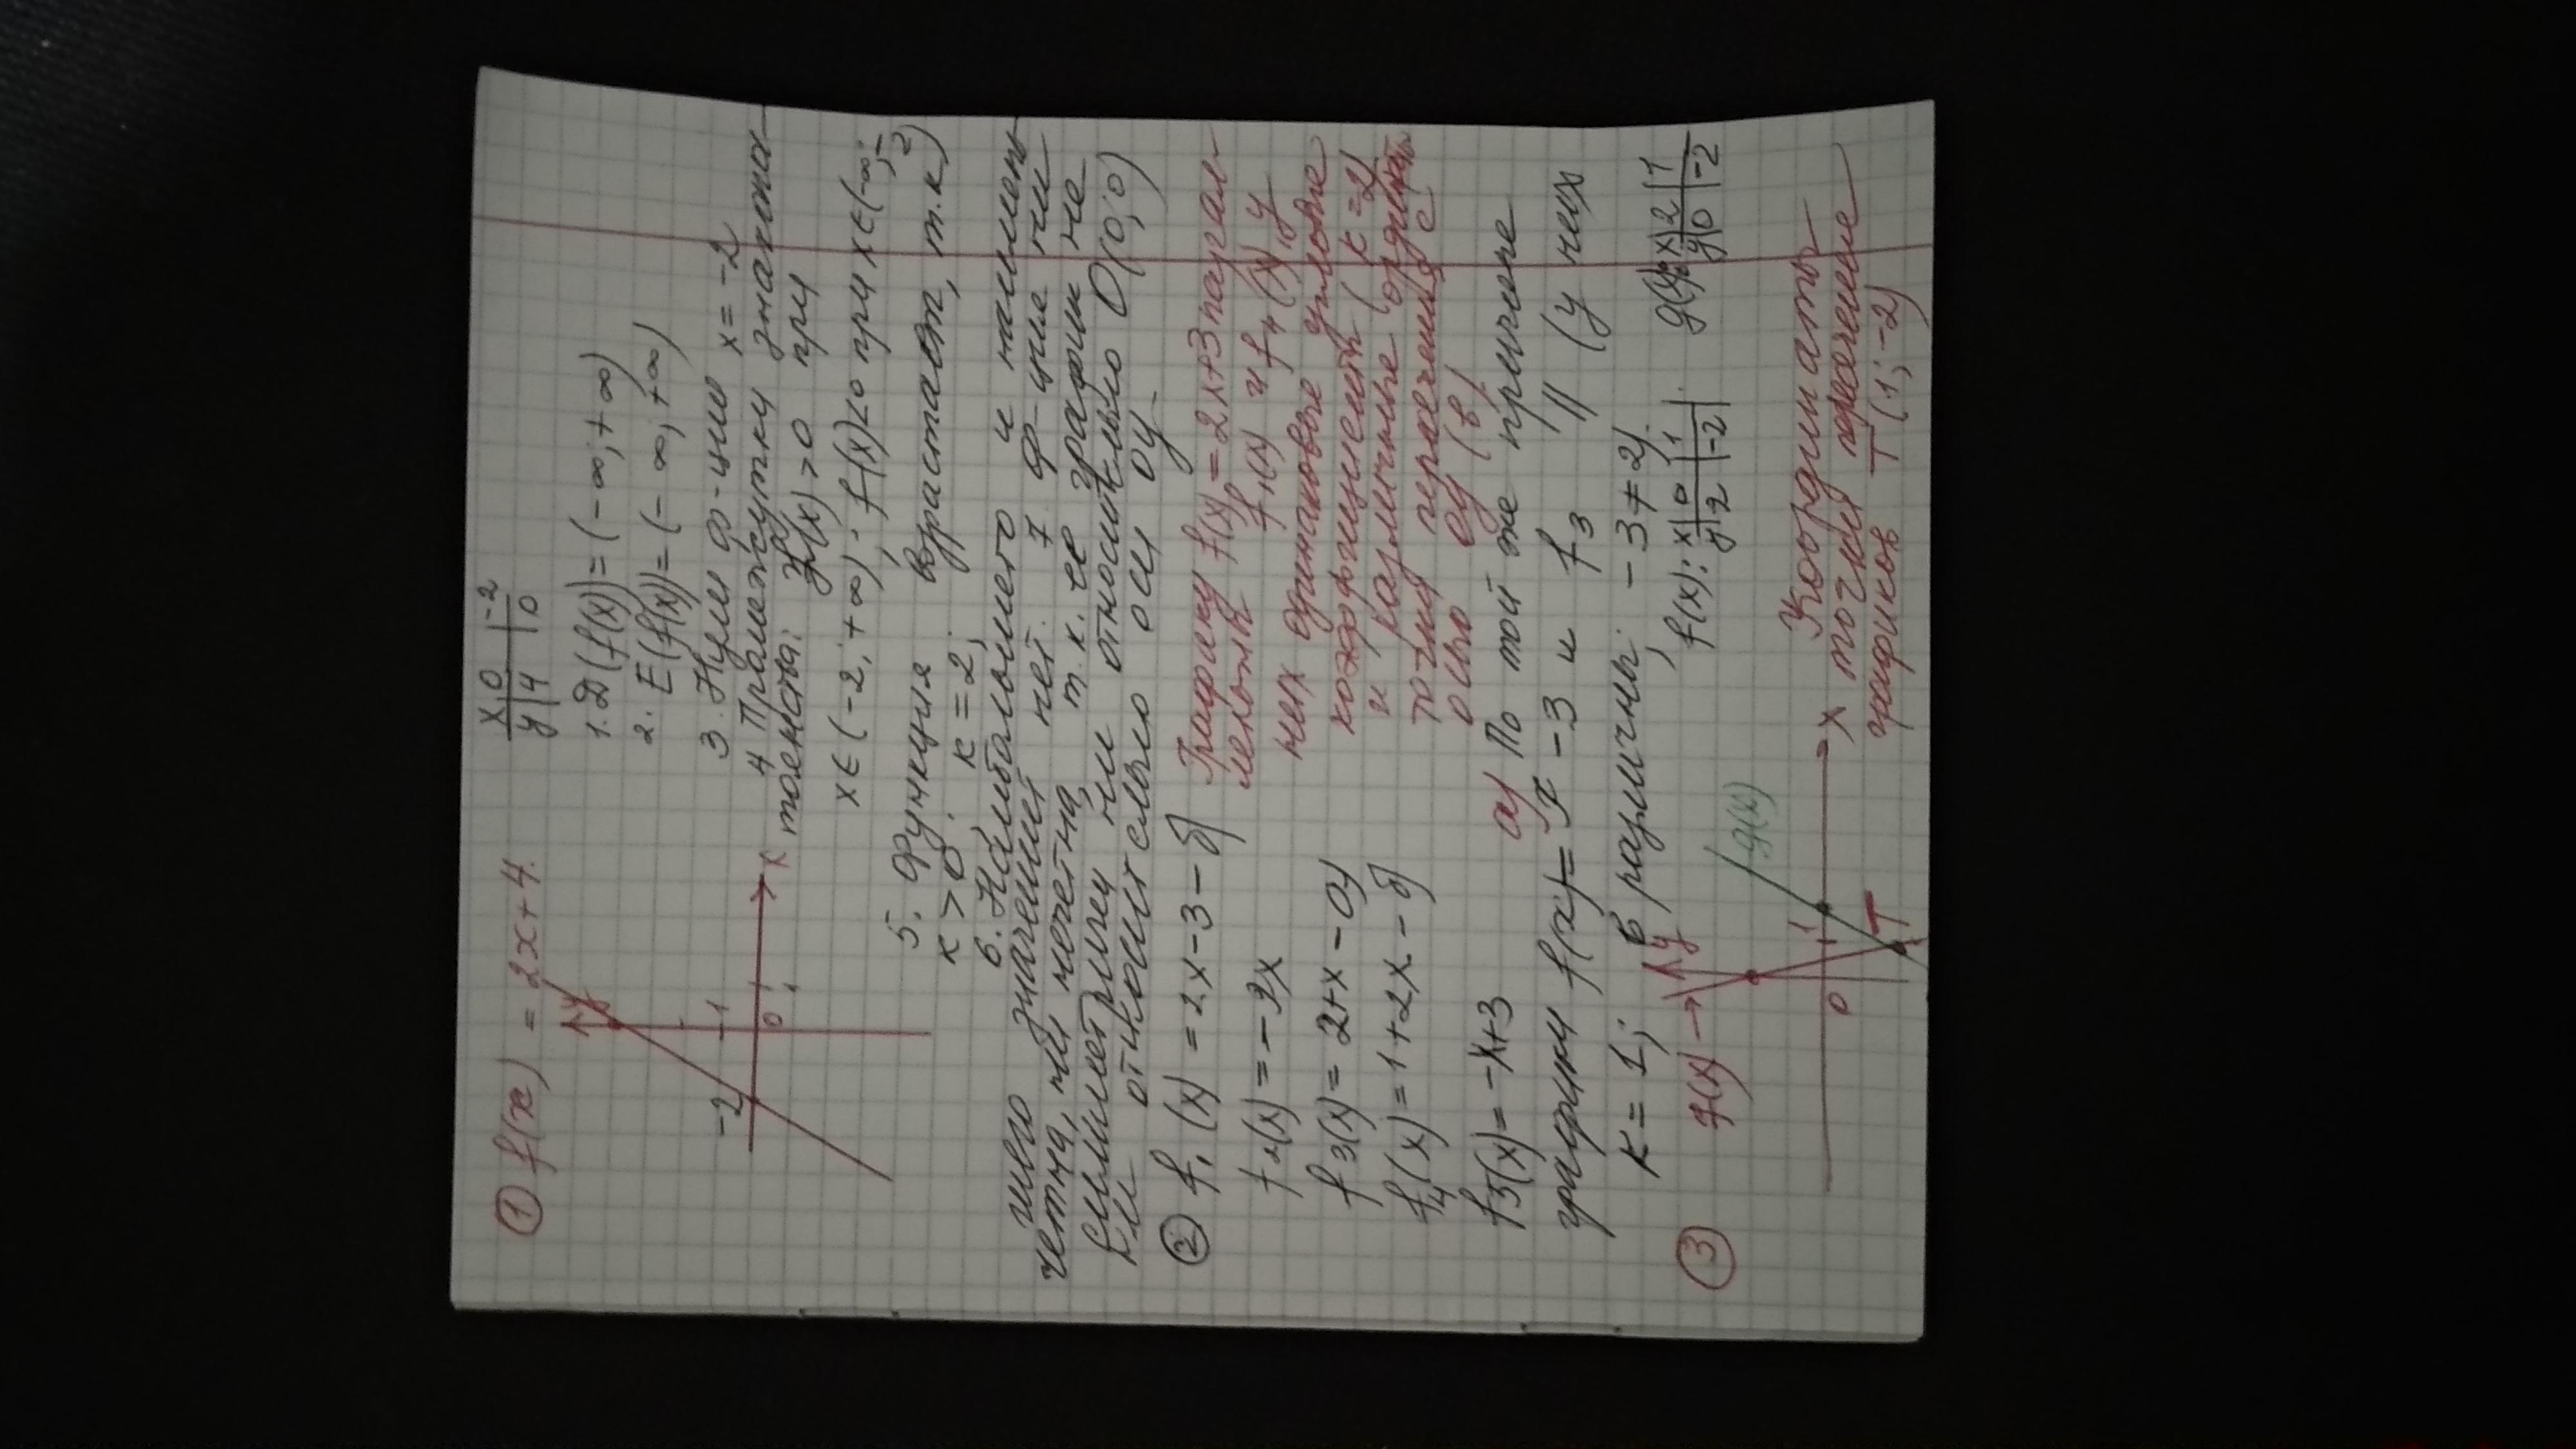 ① f(x) = 2x+4.
x | 0 | -2
y | 4 | 0
1. D(f(x)) = (-∞; +∞)
2. E(f(x)) = (-∞; +∞)
3. Нули ф-ции x = -2
4 Промежутки знакопос-
тоянства: f(x) > 0 при
x ∈ (-2; +∞); f(x) < 0 при x ∈ (-∞; -2)
y
1
-2
0
1
x
5. Функция возрастает, т.к.
к > 0. к = 2;
6. Наибольшего и наимень
шего значений нет. 7 ф-ция ни
четна, ни нечетна, т.к. ее график не
симметричен ни относительно O(0; 0)
ни относительно оси оу.
② f₁(x) = 2x-3 - б)
f₂(x) = -2x
f₃(x) = 2+x - а)
f₄(x) = 1+2x - б)
f5(x) = -x+3
Графику f(x) = 2x+3 парал-
лельны f₁(x) и f₄(x), у
них одинаковые угловые
коэффициенты (к = 2)
и различные ординаты
точки пересечения с
осью оу (в)
а) По той же причине
графики f(x) = x-3 и f₃ || (у них
к = 1; в различны: -3 ≠ 2).
③ f(x): x | 0 | 1
y | 2 | -2
g(x): x | 2 | 1
y | 0 | -2
f(x) → y
g(x)
0
1
x
T
Координаты
точки пересечения
графиков T(1; -2)